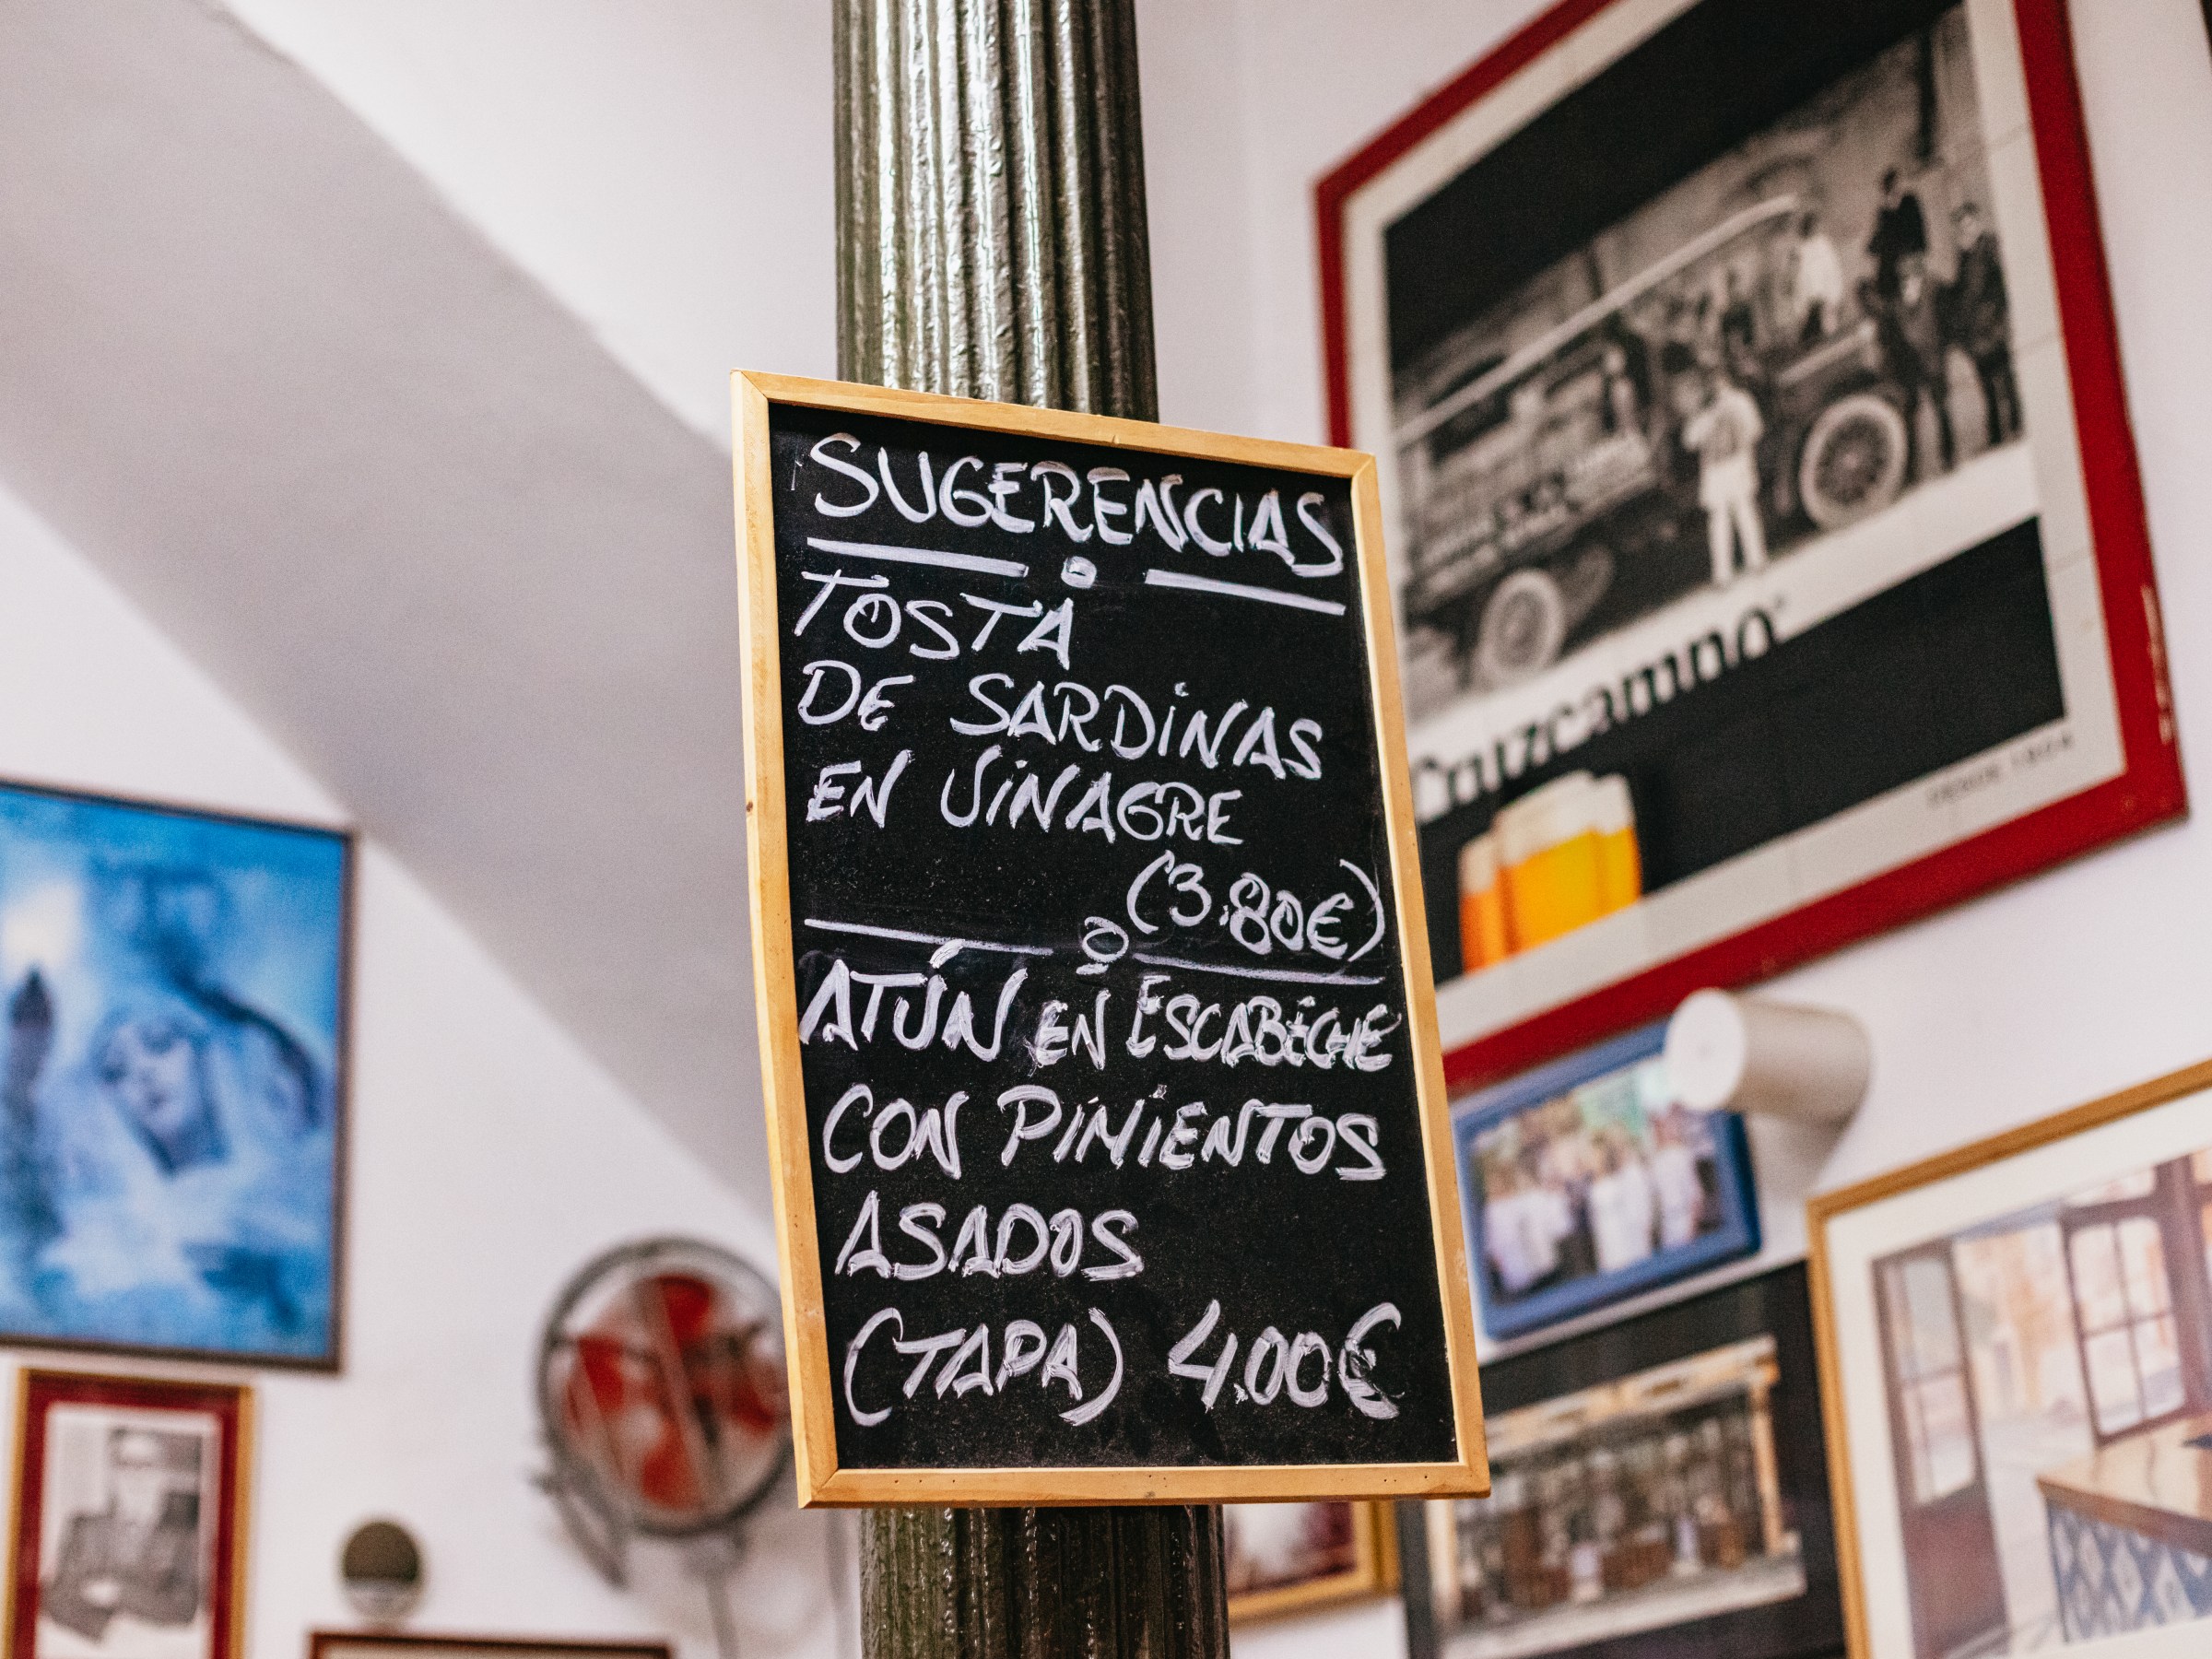 SUGERENCIAS
TOSTA
DE SARDINAS
EN VINAGRE
(3.80€)
ATÚN EN ESCABECHE
CON PIMIENTOS
ASADOS
(TAPA) 4.00€
Cruzcampo
DESDE 1904